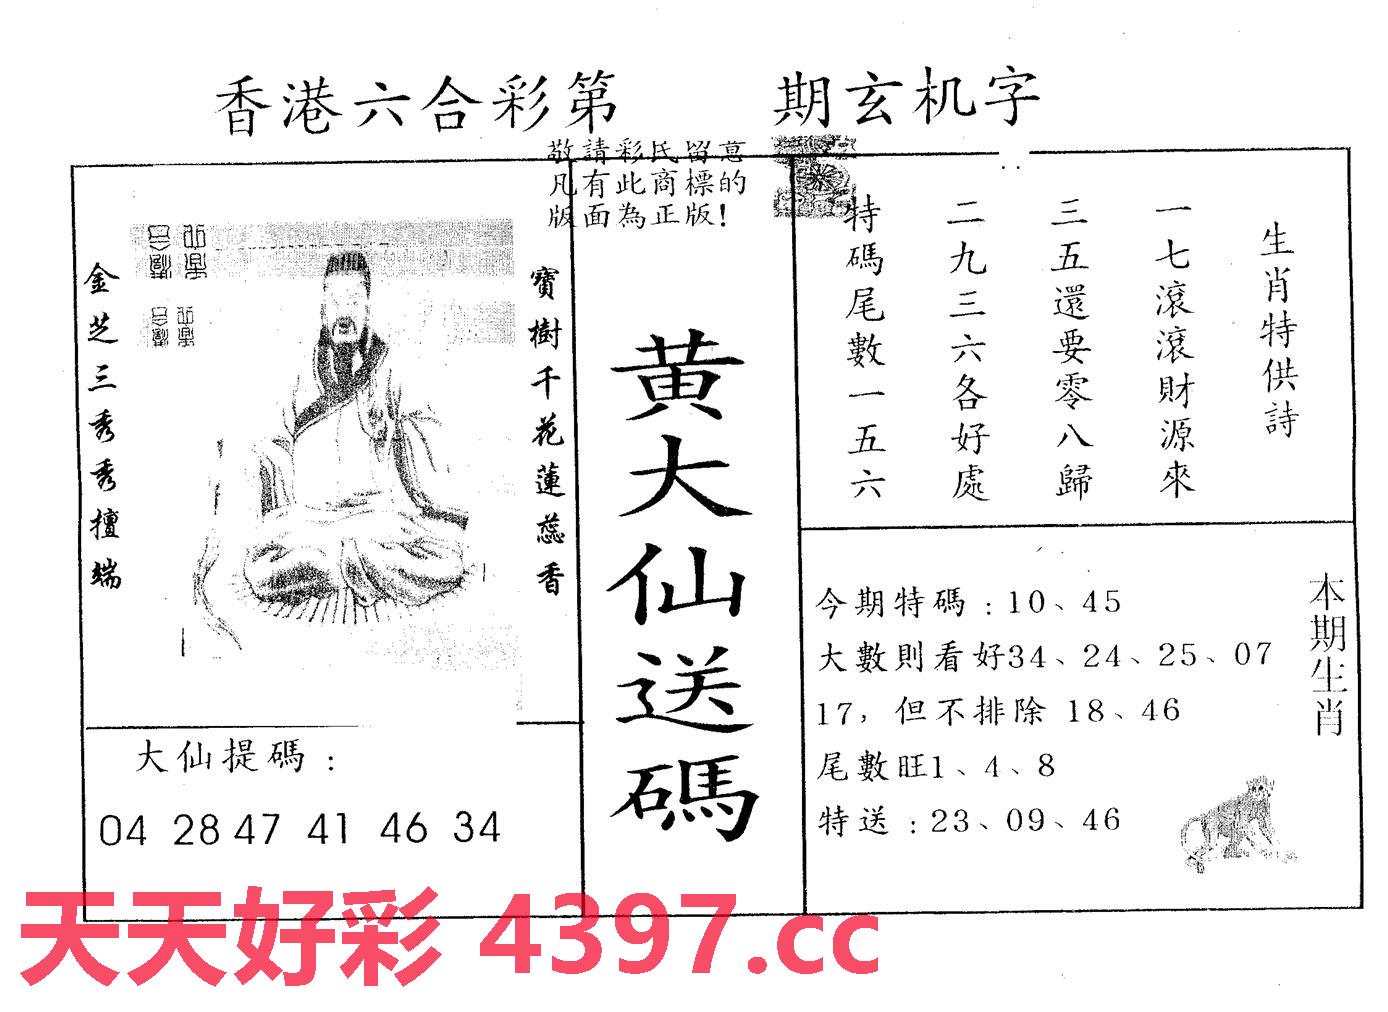 香港六合彩第 期玄机字
敬請彩民留意
凡有此商標的
版面為正版!
寶樹千花蓮蕊香
金芝三秀秀擅端
黄大仙送碼
生肖特供詩
一七滾滾財源來
三五還要零八歸
二九三六各好處
特碼尾數一五六
大仙提碼:
04 28 47 41 46 34
今期特碼:10、45
大數則看好34、24、25、07
17,但不排除 18、46
尾數旺1、4、8
特送:23、09、46
本期生肖
天天好彩 4397.cc